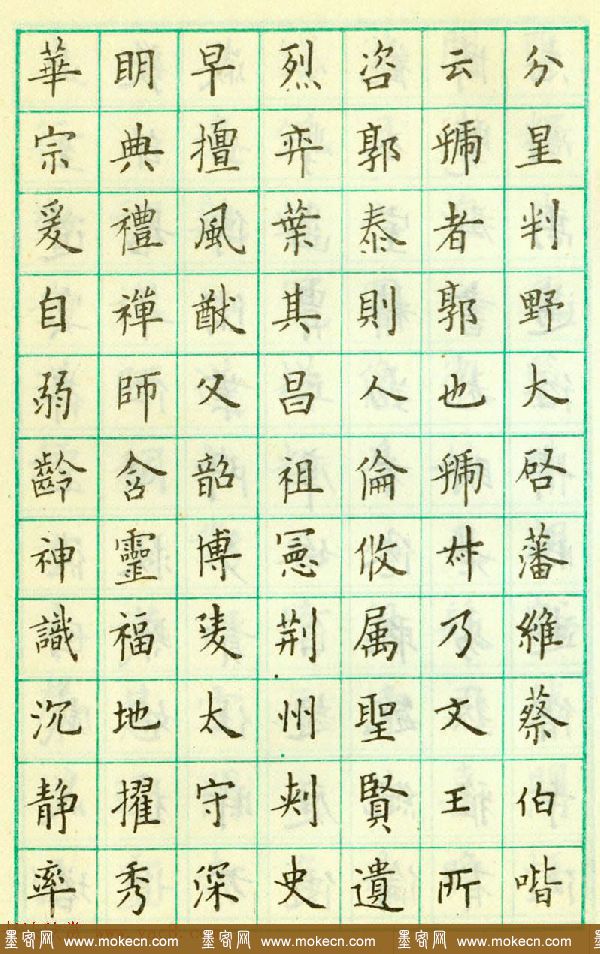 分星判野大启藩維蔡伯喈
云虢者郭也虢叔乃文王所
咨郭泰則人倫攸属聖賢遺
烈弈葉其昌祖憲荊州刺史
早擅風猷父韶博陵太守深
明典禮禪師含靈福地擢秀
華宗爰自弱齡神識沉静率
墨客网 www.mokecn.com 墨客网 www.mokecn.com 墨客网 www.mokecn.com